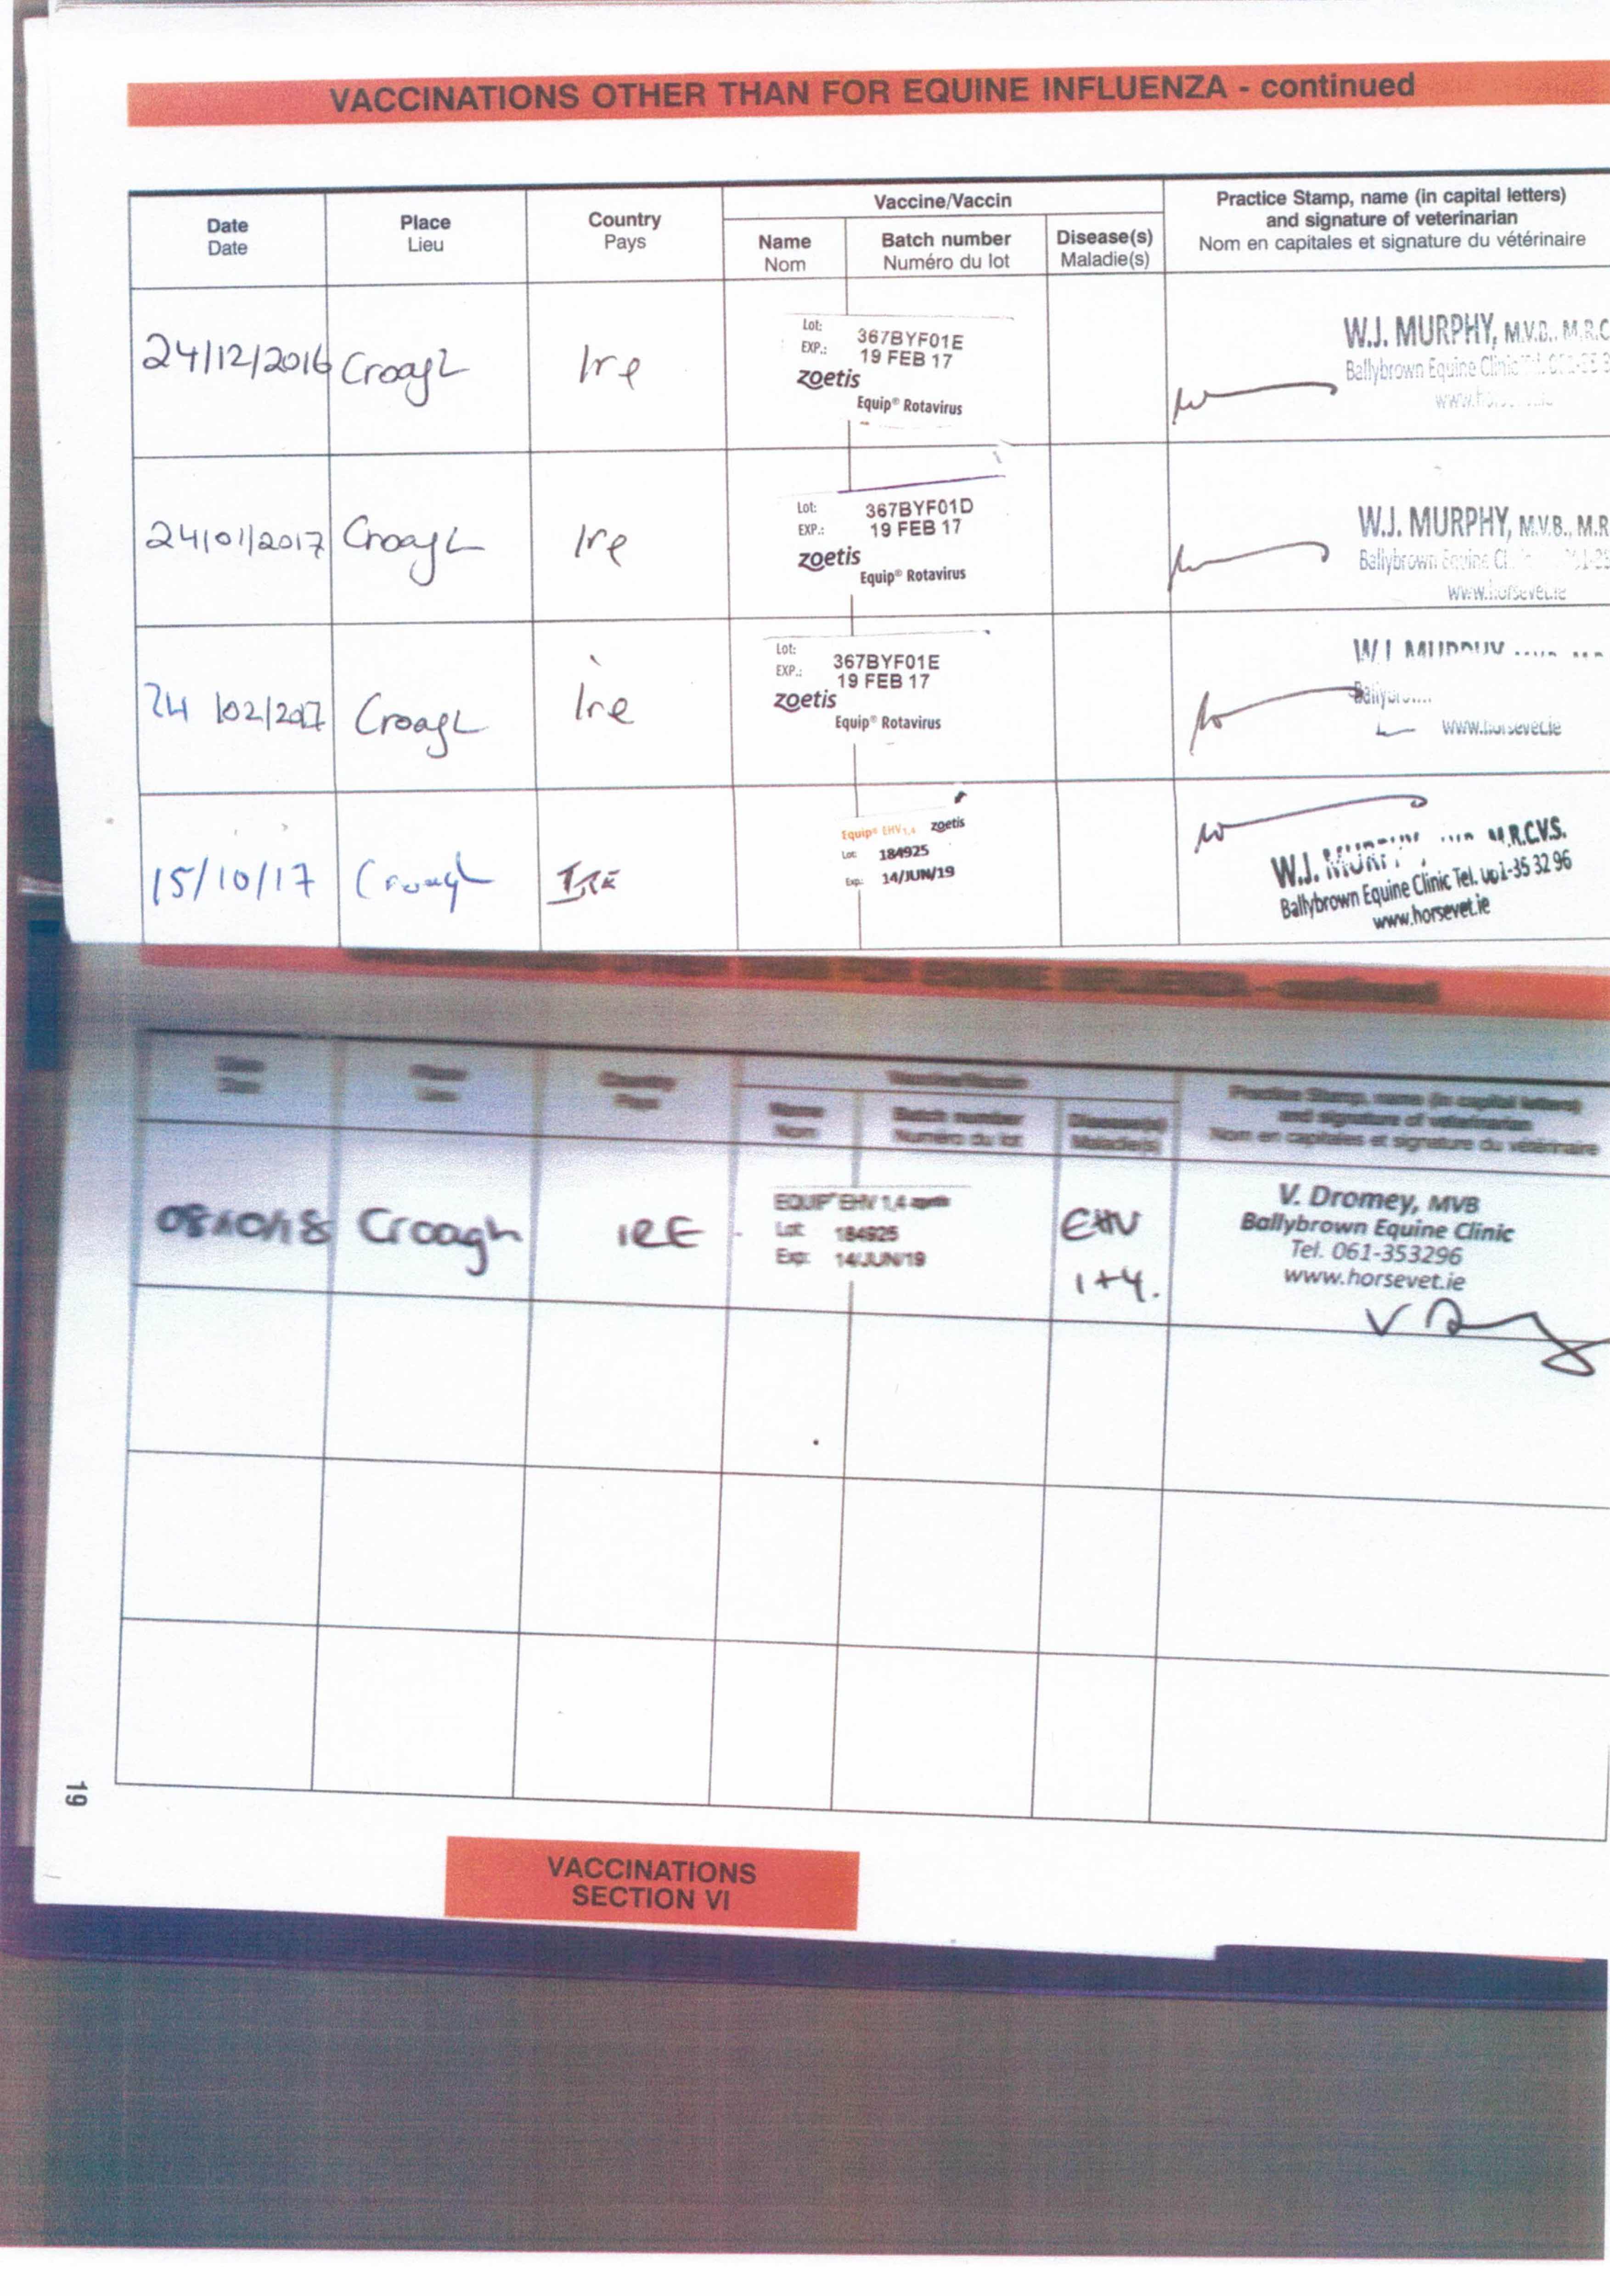 VACCINATIONS OTHER THAN FOR EQUINE INFLUENZA - continued
Date
Date
Place
Lieu
Country
Pays
Vaccine/Vaccin
Name
Nom
Batch number
Numéro du lot
Disease(s)
Maladie(s)
Practice Stamp, name (in capital letters)
and signature of veterinarian
Nom en capitales et signature du vétérinaire
24/12/2016 Croagh Ire
Lot: 367BYF01E
EXP.: 19 FEB 17
zoetis
Equip® Rotavirus
W.J. MURPHY, M.V.B., M.R.C
Ballybrown Equine Clinic
24/01/2017 Croagh Ire
Lot: 367BYF01D
EXP.: 19 FEB 17
zoetis
Equip® Rotavirus
W.J. MURPHY, M.V.B., M.R
Ballybrown Equine
www.horsevet.ie
24/02/2017 Croagh Ire
Lot: 367BYF01E
EXP.: 19 FEB 17
zoetis
Equip® Rotavirus
W.J. MURPHY
Ballybrown
www.horsevet.ie
15/10/17 Croagh IRE
Equip® EHV 1,4 zoetis
Lot: 184925
Exp: 14/JUN/19
W.J. MURPHY M.R.C.V.S.
Ballybrown Equine Clinic Tel. 061-35 32 96
www.horsevet.ie
Country
Pays
Name
Nom
Batch number
Numéro du lot
Disease(s)
Maladie(s)
Practice Stamp, name (in capital letters)
and signature of veterinarian
Nom en capitales et signature du vétérinaire
08/10/18 Croagh IRE
EQUIP® EHV 1,4 zoetis
Lot: 184925
Exp: 14/JUN/19
EHV
1+4.
V. Dromey, MVB
Ballybrown Equine Clinic
Tel. 061-353296
www.horsevet.ie
19
VACCINATIONS
SECTION VI